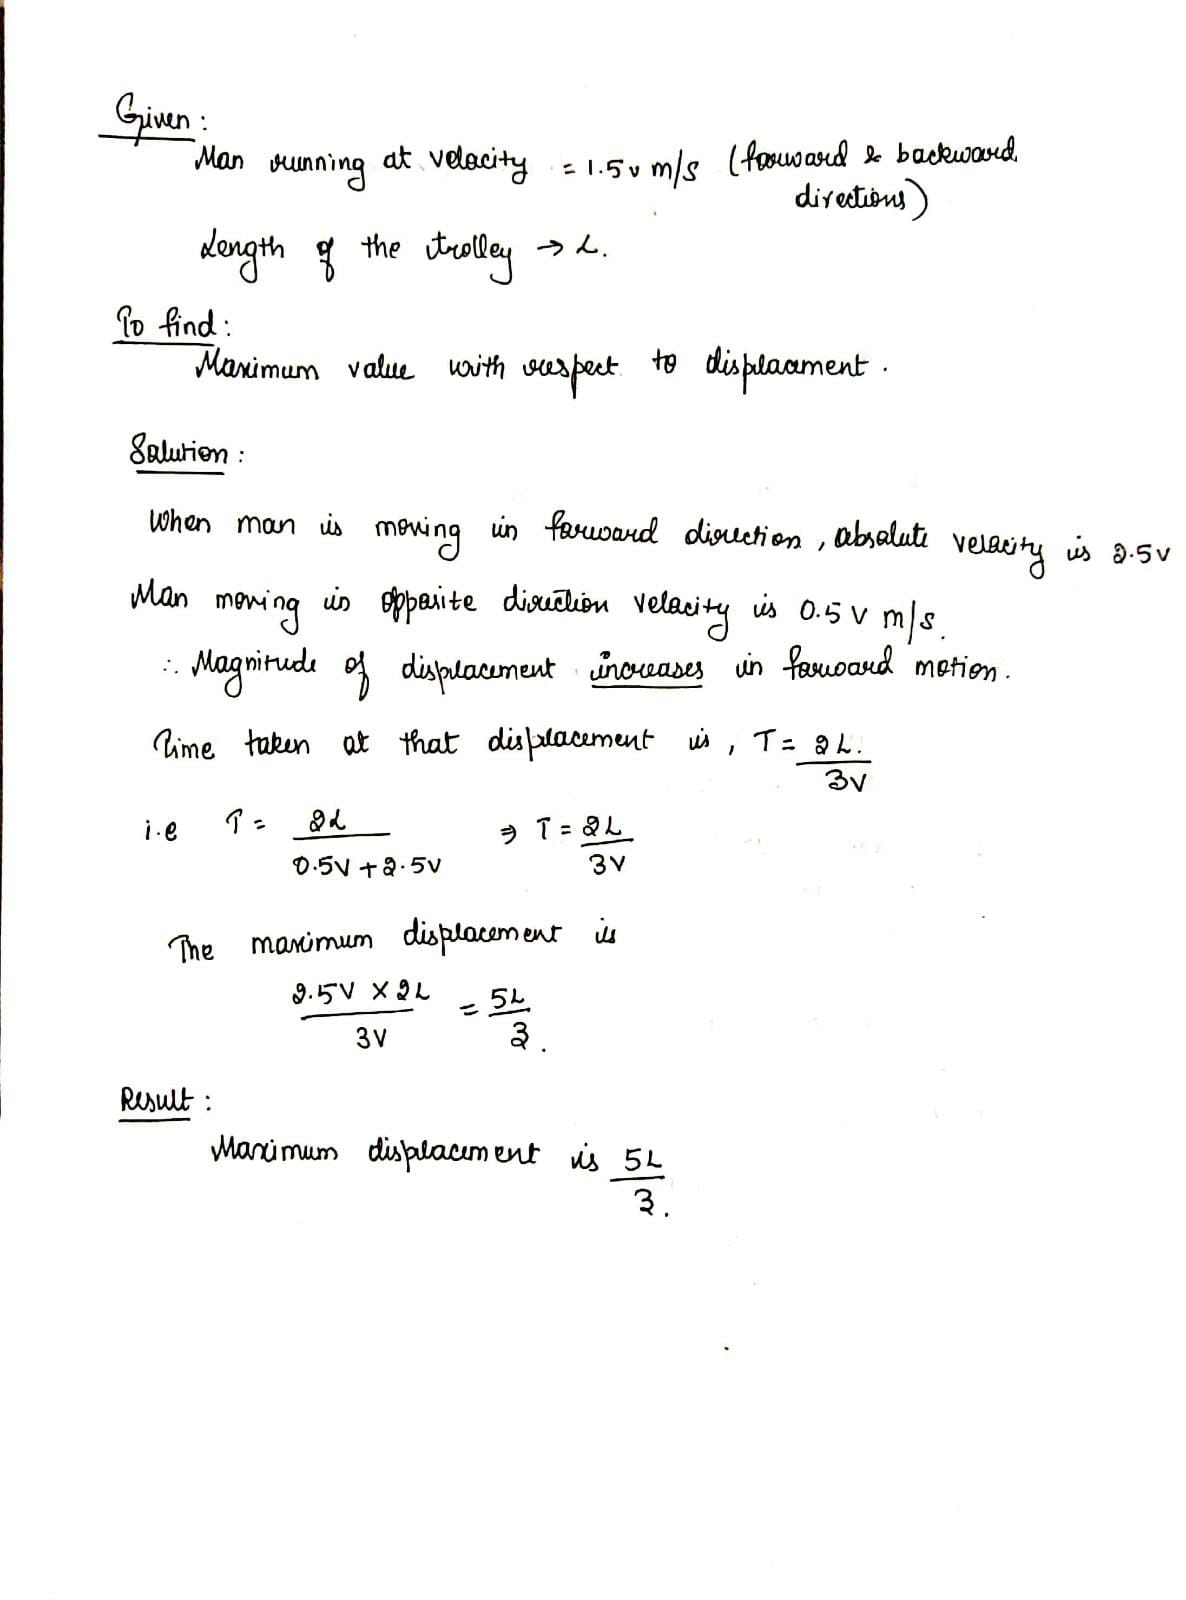 Given :
Man running at velocity = 1.5 v m/s (forward & backward
directions)
Length of the trolley → L.
To find :
Maximum value with respect to displacement .
Solution :
When man is moving in forward direction , absolute velocity is 2.5v
Man moving in opposite direction velocity is 0.5 v m/s.
∴ Magnitude of displacement increases in forward motion .
Time taken at that displacement is , T = 2L.
3v
i.e T = 2L ⇒ T = 2L
0.5V + 2.5V 3V
The maximum displacement is
2.5V X 2L = 5L
3V 3 .
Result :
Maximum displacement is 5L
3 .